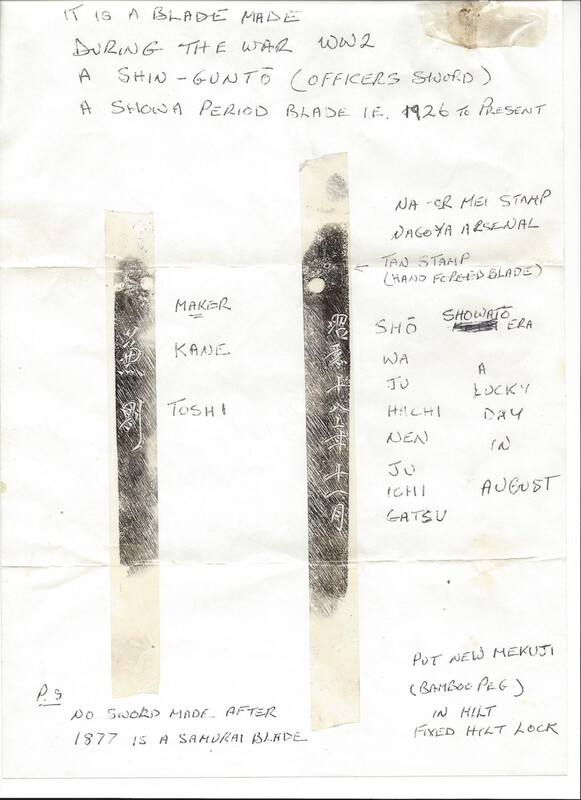 IT IS A BLADE MADE
DURING THE WAR WW2
A SHIN-GUNTŌ (OFFICERS SWORD)
A SHOWA PERIOD BLADE IE. 1926 TO PRESENT
兼
MAKER
KANE
TOSHI
昭和十八年十一月
NA-OR MEI STAMP
NAGOYA ARSENAL
← TAN STAMP
(HAND FORGED BLADE)
SHŌ
WA
JU
HACHI
NEN
JU
ICHI
GATSU
SHOWATO
ERA
A
LUCKY
DAY
IN
AUGUST
P.S
NO SWORD MADE AFTER
1877 IS A SAMURAI BLADE
PUT NEW MEKUJI
(BAMBOO PEG)
IN HILT
FIXED HILT LOCK